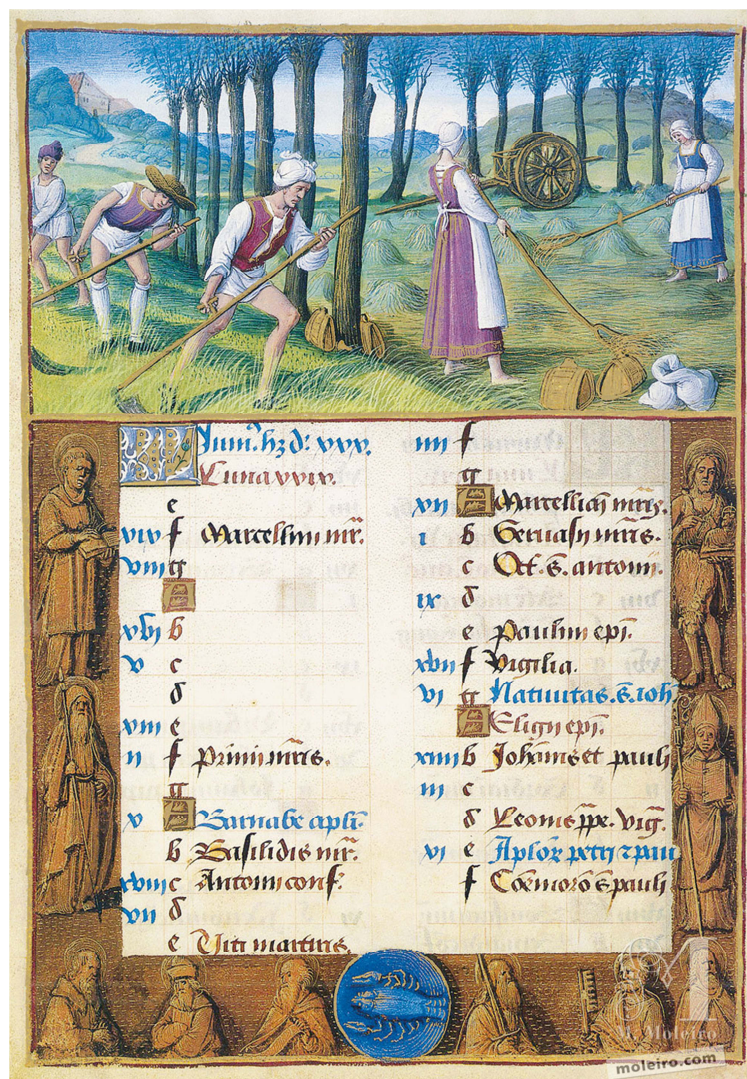 KL Juni9 hz d: xxx.
Luna xxix.
e
xix f Marcellini mr.
viii g
A
xvi b
v c
d
xiii e
ii f Primi mris.
g
x A Barnabe apli.
b Basilidis mr.
xviii c Antoni conf.
vii d
e Viti martiris.
iiii f
g
xii A Marcelliani mris.
i b Geruasii mris.
c Oct. s. antonii.
ix d
e Paulini epi.
xvii f Vigilia.
vi g Natiuitas. s. ioh
A Eligii epi.
xiiii b Johannis et pauli
iii c
d Leonis ppe. vig.
vi e Aplor petri z pau
f Cōmoro s pauli
M
M. Moleiro
moleiro.com